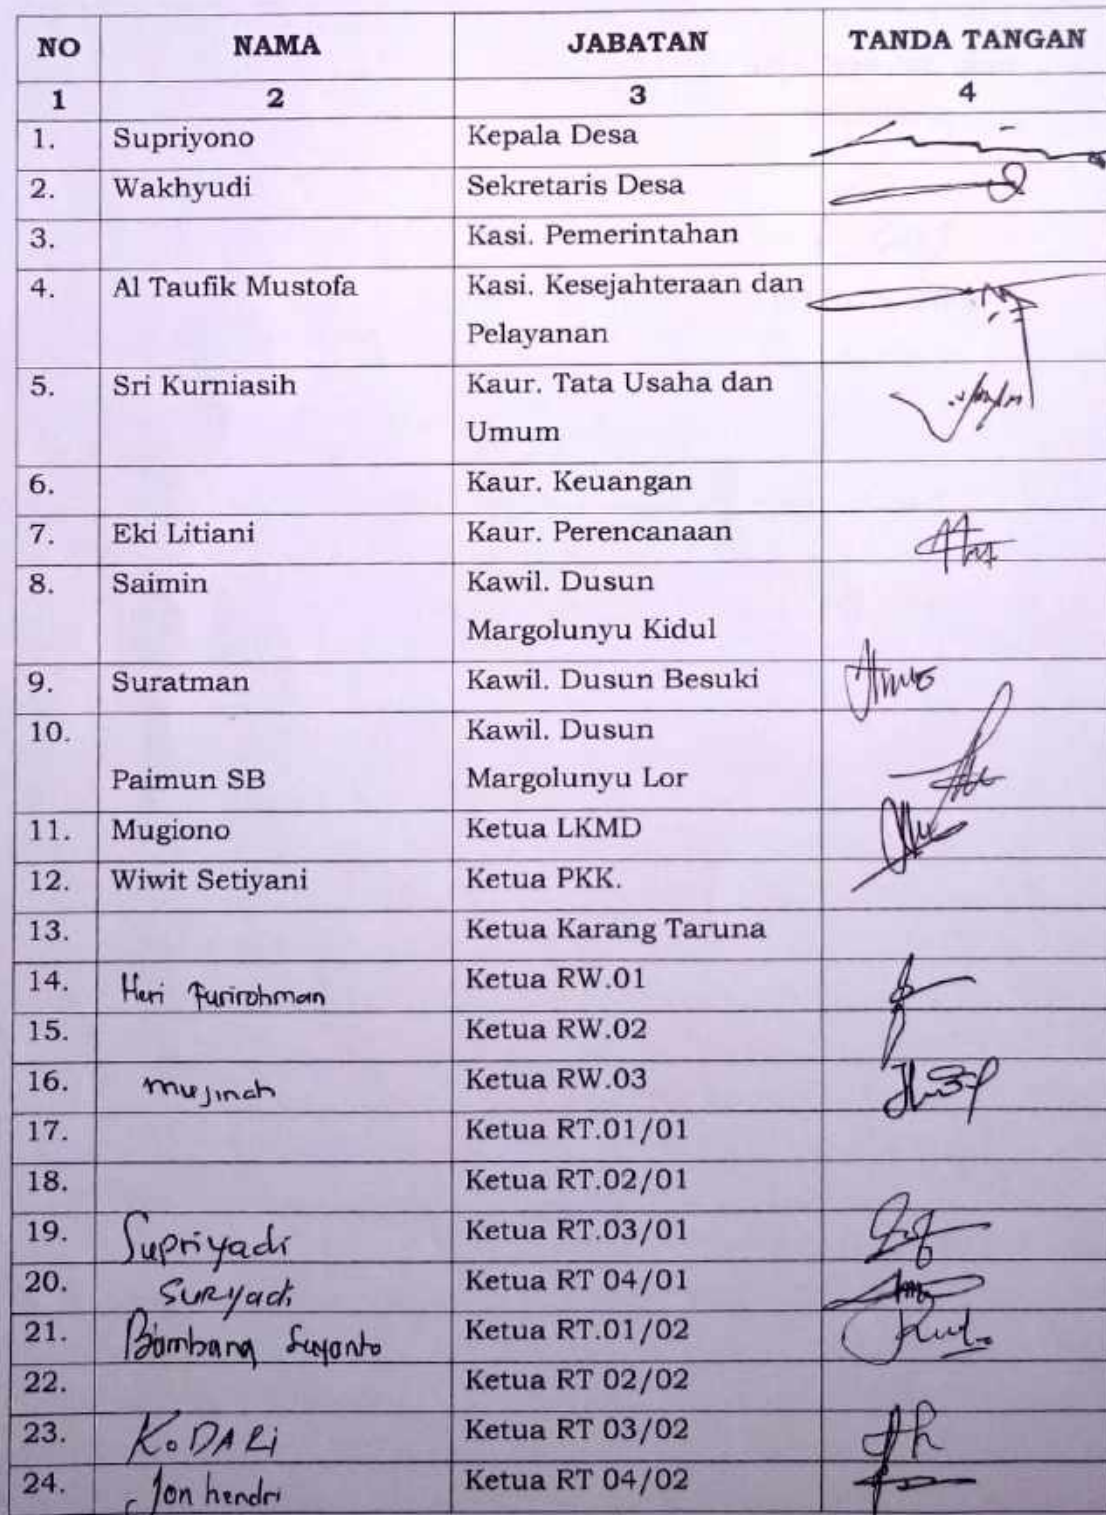 NO NAMA JABATAN TANDA TANGAN
1 2 3 4
1. Supriyono Kepala Desa
2. Wakhyudi Sekretaris Desa
3. Kasi. Pemerintahan
4. Al Taufik Mustofa Kasi. Kesejahteraan dan
Pelayanan
5. Sri Kurniasih Kaur. Tata Usaha dan
Umum
6. Kaur. Keuangan
7. Eki Litiani Kaur. Perencanaan
8. Saimin Kawil. Dusun
Margolunyu Kidul
9. Suratman Kawil. Dusun Besuki
10. Kawil. Dusun
Paimun SB Margolunyu Lor
11. Mugiono Ketua LKMD
12. Wiwit Setiyani Ketua PKK.
13. Ketua Karang Taruna
14. Heri Furirohman Ketua RW.01
15. Ketua RW.02
16. Mujinah Ketua RW.03
17. Ketua RT.01/01
18. Ketua RT.02/01
19. Supriyadi Ketua RT.03/01
20. SURyadi Ketua RT 04/01
21. Bambang Suyanto Ketua RT.01/02
22. Ketua RT 02/02
23. KoDARi Ketua RT 03/02
24. Jon hendri Ketua RT 04/02